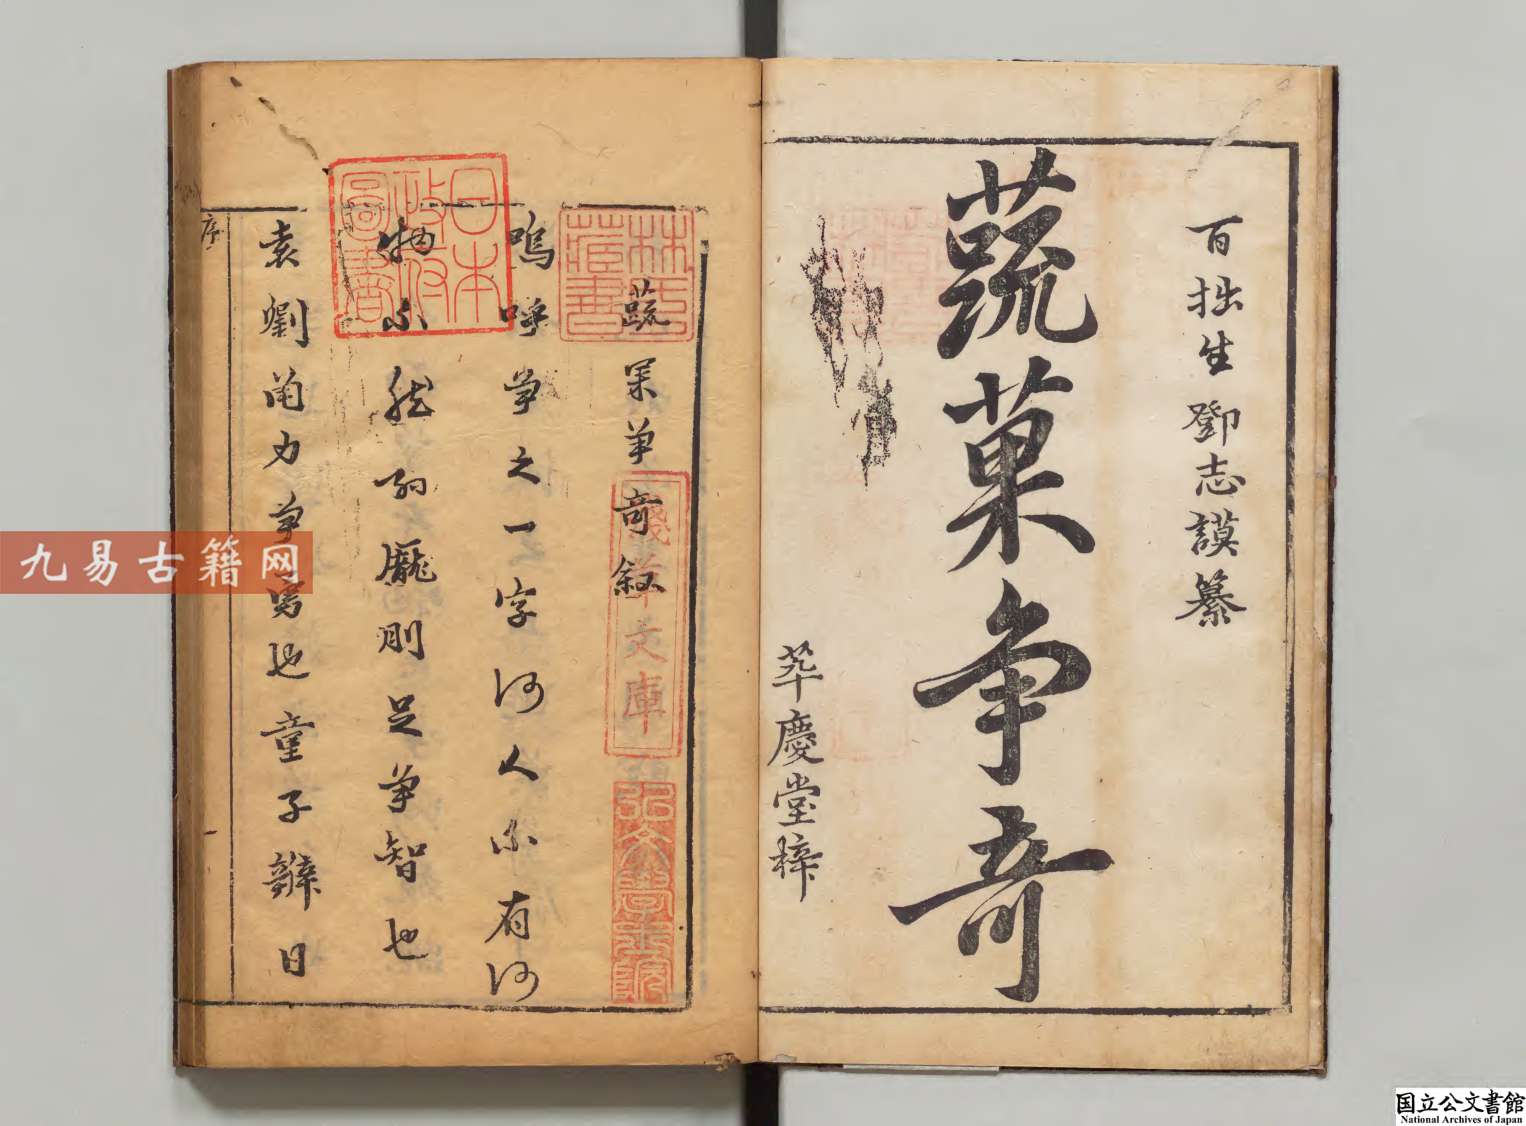 百拙生鄧志謨纂
蔬菓争奇
萃慶堂梓
蔬果争奇敘
嗚呼争之一字何人不有何
物不然刘龐則足争智也
袁劉角力争勇也童子辯日
序
日本政府圖書
林氏藏書
淺草文庫
弘文學士院
九易古籍网
国立公文書館
National Archives of Japan